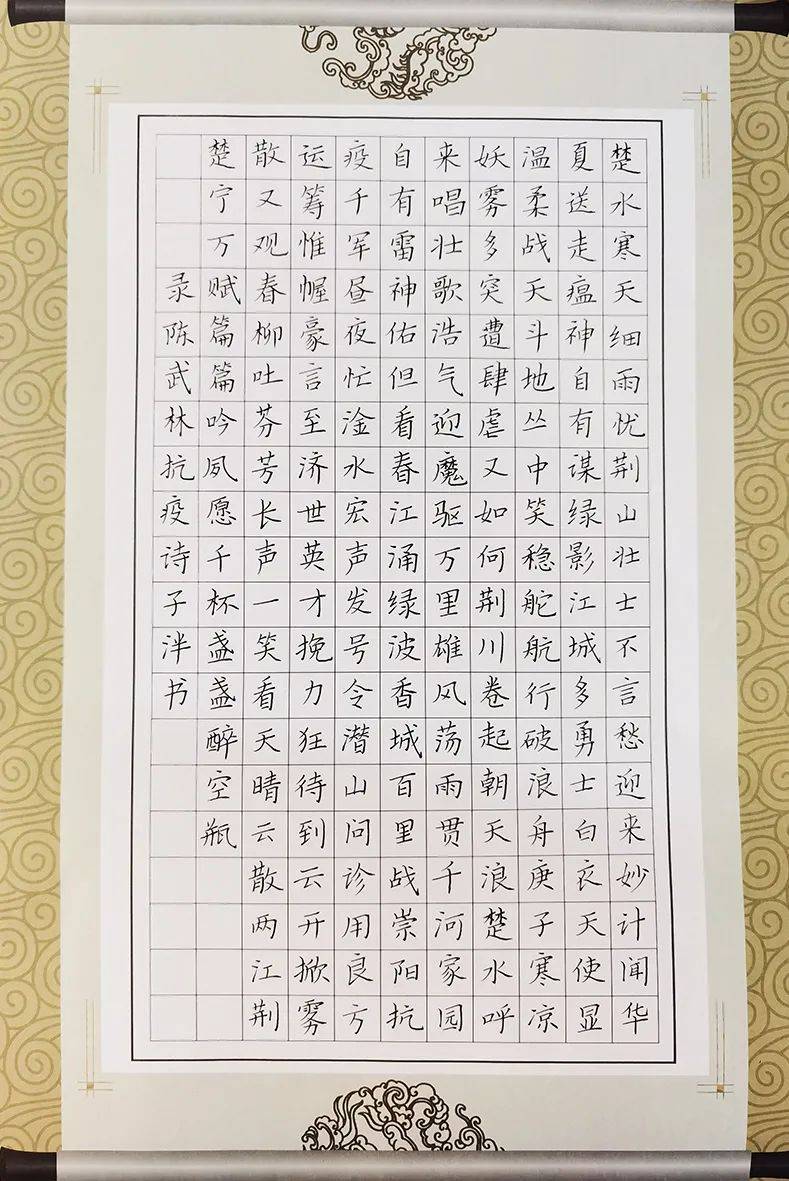 楚水寒天细雨忧荆山壮士不言愁迎来妙计闻华
夏送走瘟神自有谋绿影江城多勇士白衣天使显
温柔战天斗地丛中笑稳舵航行破浪舟庚子寒凉
妖雾多突遭肆虐又如何荆川卷起朝天浪楚水呼
来唱壮歌浩气迎魔驱万里雄风荡雨贯千河家园
自有雷神佑但看春江涌绿波香城百里战崇阳抗
疫千军昼夜忙淦水宏声发号令潜山问诊用良方
运筹惟幄豪言至济世英才挽力狂待到云开掀雾
散又观春柳吐芬芳长声一笑看天晴云散两江荆
楚宁万赋篇篇吟夙愿千杯盏盏醉空瓶
录陈武林抗疫诗子泮书